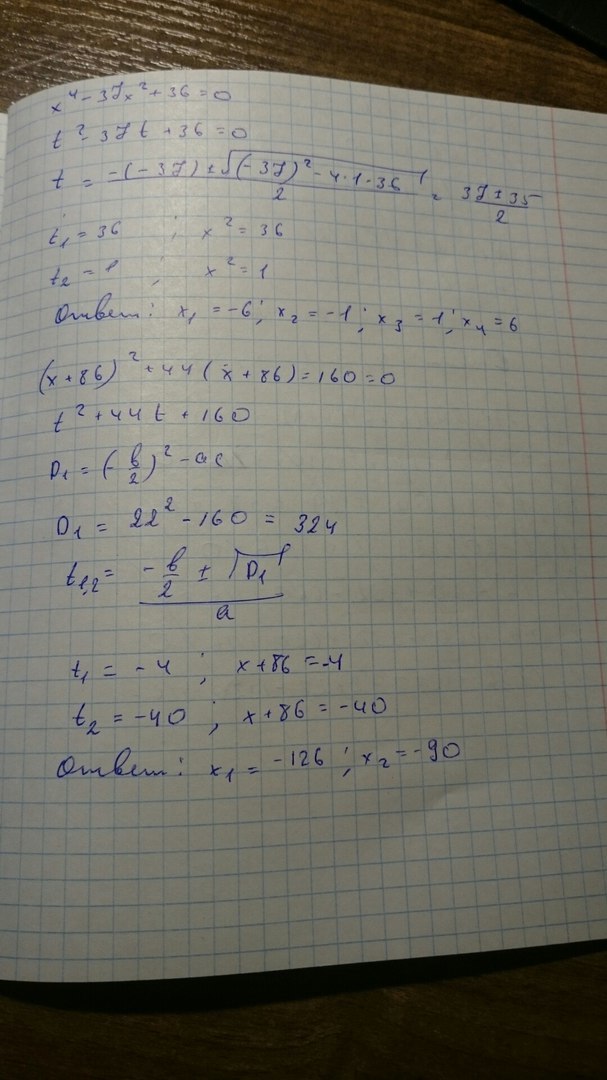 x⁴ - 37x² + 36 = 0
t² - 37t + 36 = 0
t = (-(-37) ± √((-37)² - 4·1·36))/2 = (37 ± 35)/2
t₁ = 36 ; x² = 36
t₂ = 1 ; x² = 1
Ответ: x₁ = -6; x₂ = -1; x₃ = 1; x₄ = 6
(x+86)² + 44(x+86) = 160 = 0
t² + 44t + 160
D₁ = (-b/2)² - ac
D₁ = 22² - 160 = 324
t₁,₂ = (-b/2 ± √D₁)/a
t₁ = -4 ; x+86 = -4
t₂ = -40 ; x+86 = -40
Ответ: x₁ = -126 ; x₂ = -90